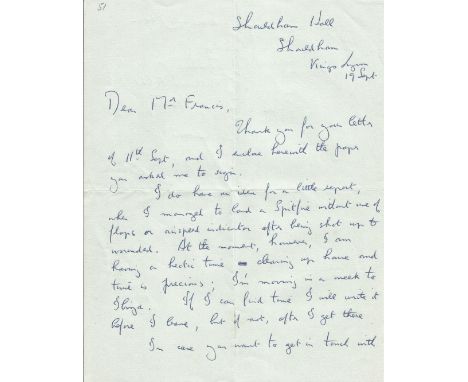 51
Shouldham Hall
Shouldham
Kings Lynn
19 Sept
Dear Mrs Frances,
Thank you for your letter
of 11th Sept, and I enclose herewith the paper
you asked me to sign.
I do have an idea for a little report,
when I managed to land a Spitfire without use of
flaps or airspeed indicator after being shot up &
wounded. At the moment, however, I am
having a hectic time clearing up house and
time is precious; I'm moving in a week to
Ibiza. If I can find time I will write it
before I leave, but if not, after I get there
In case you want to get in touch with